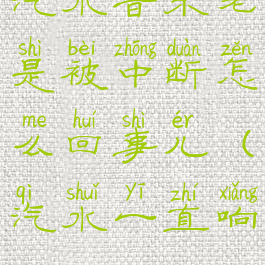 汽水音乐老
shì bèi zhōng duàn zěn
是被中断怎
me huí shì ér
么回事儿（
qì shuǐ yī zhí xiǎng
汽水一直响